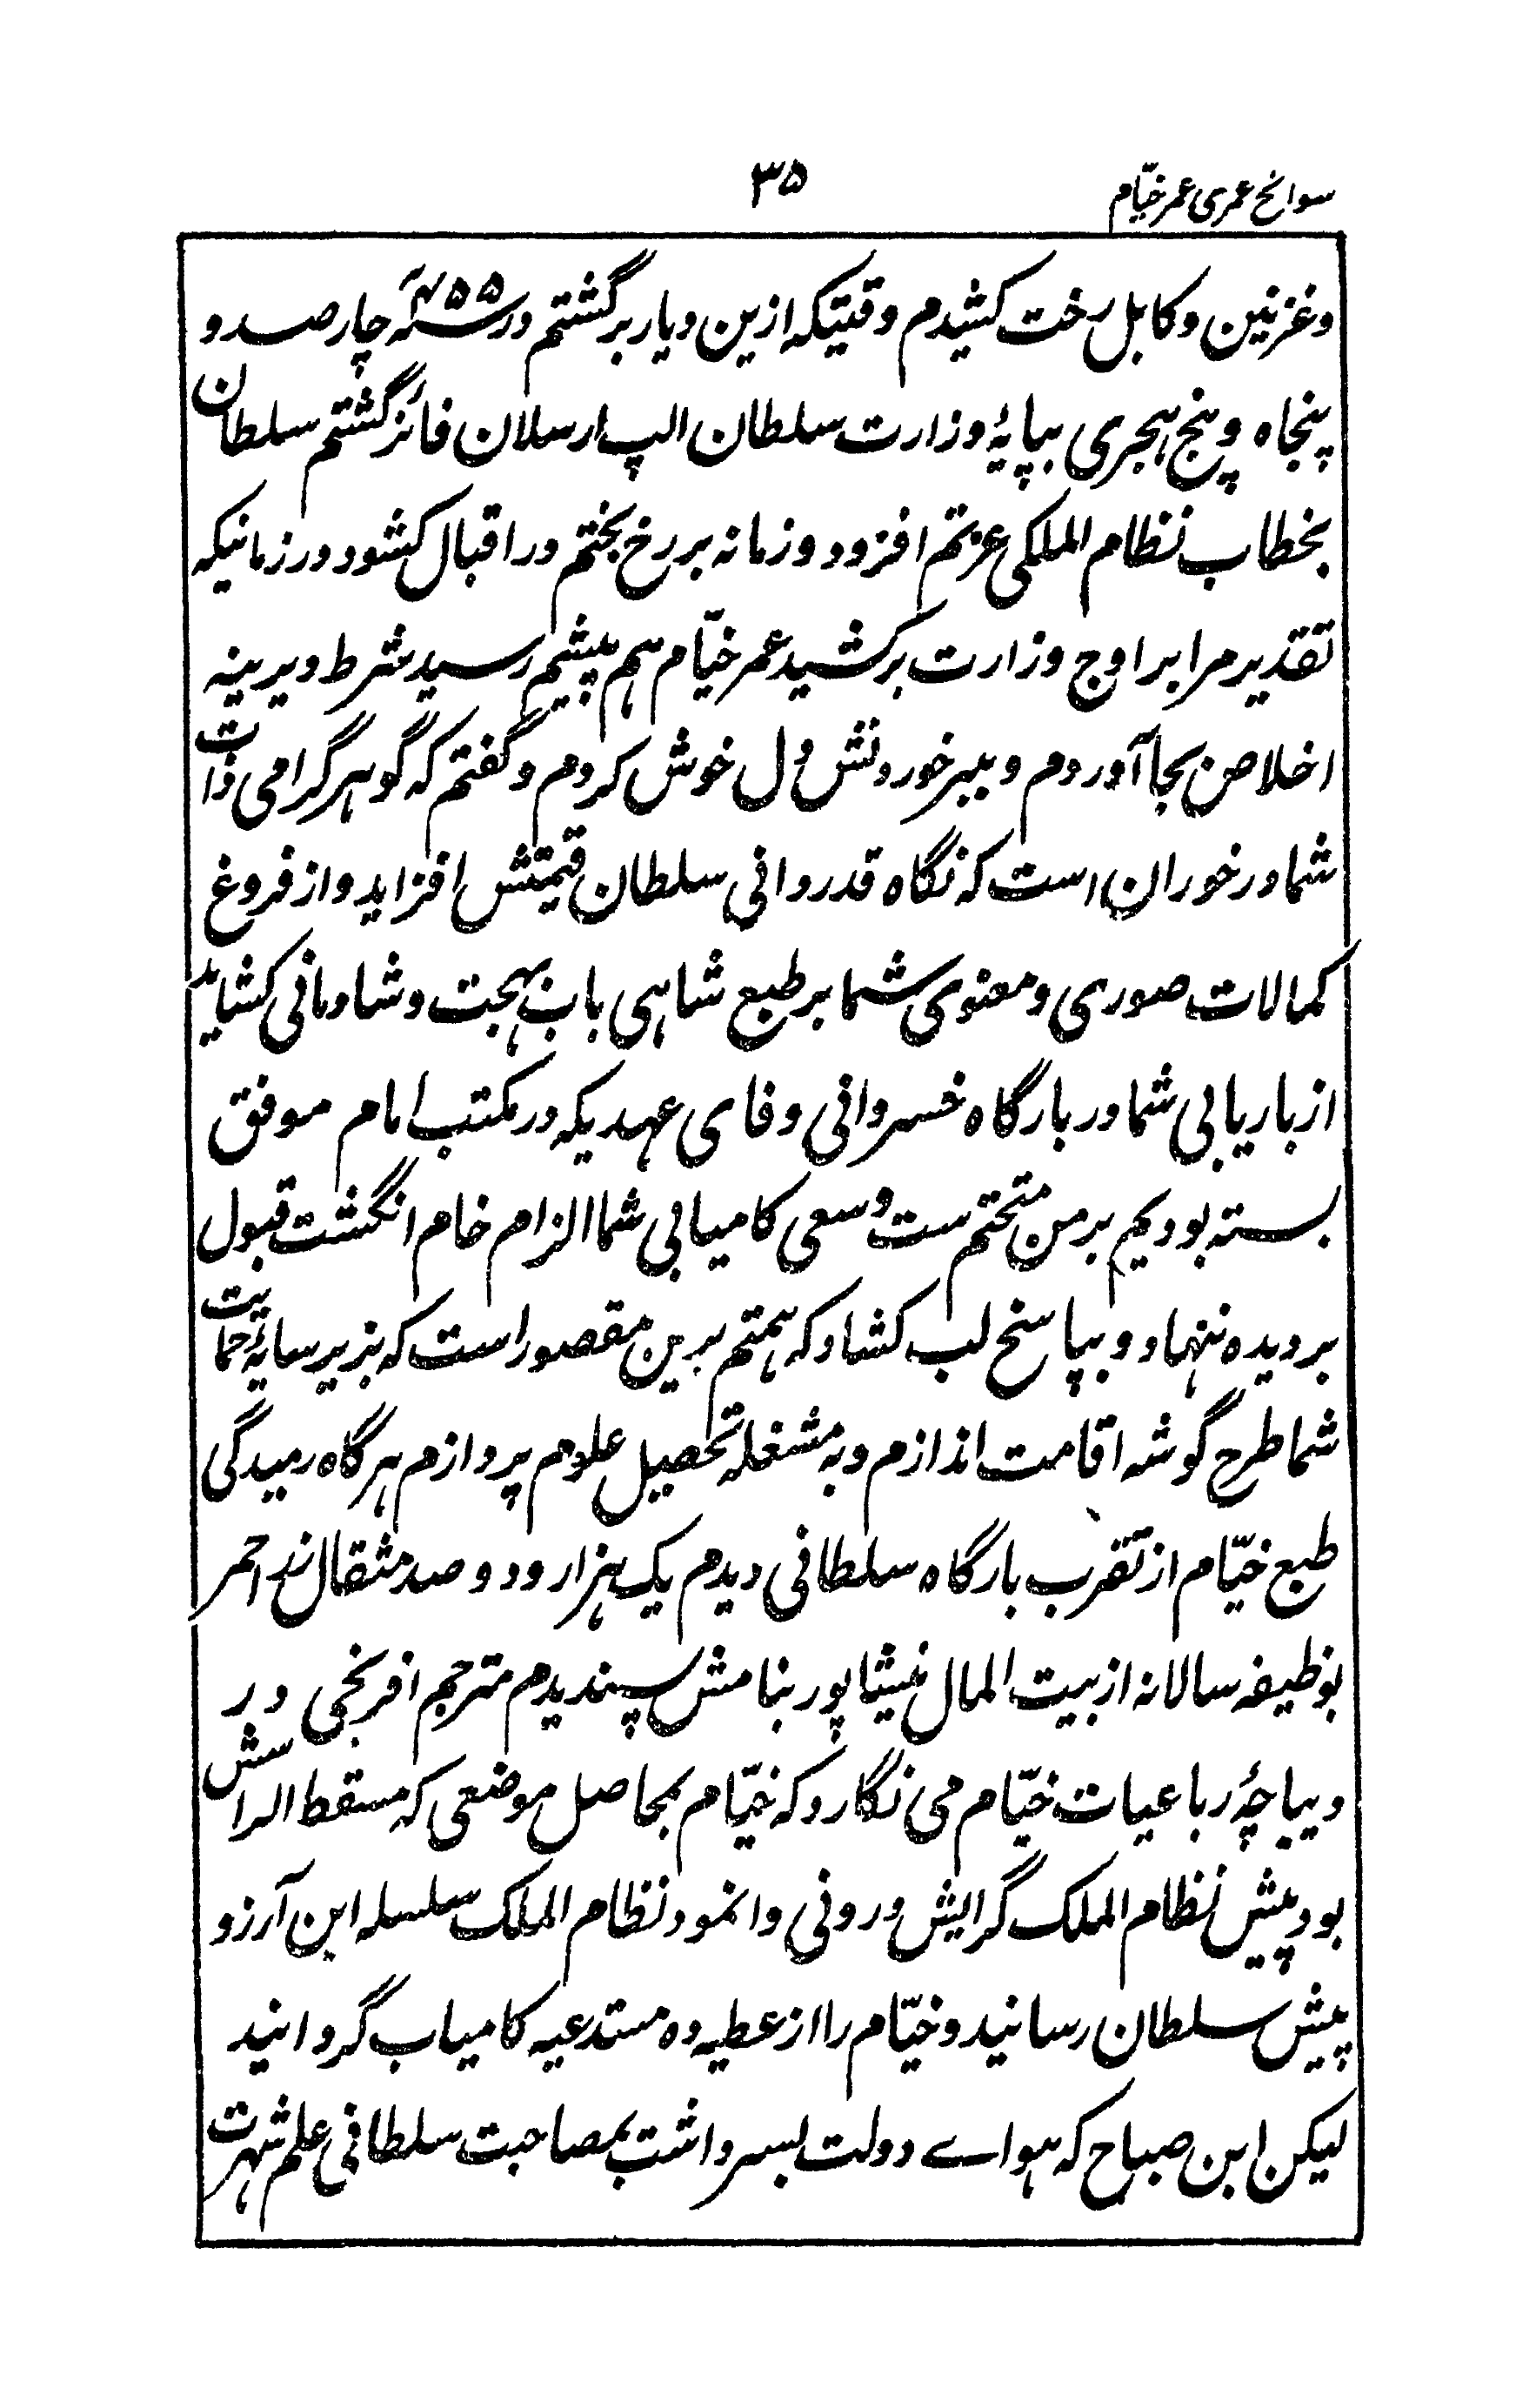 سوانح عمری عمر خیّام
۳۵
وغزنین و کابل رخت کشیدم وقتیکه ازین دیار برگشتم در ۴۵۵ سنہ چار صد و
پنجاه و پنج ہجری بپایۂ وزارت سلطان الپ ارسلان فائز گشتم سلطان
بخطاب نظام الملکی عزتم افزود و زمانہ بر رخ بختم در اقبال کشود در زمانیکہ
تقدیر مرا بر اوج وزارت برکشید عمر خیّام ہم پیشیم رسید شرط دیرینہ
اخلاص بجا آوردم و ببرخوردنش دل خوش کردم و گفتم کہ گوہر گرامی ذات
شما در خور ان است کہ نگاه قدردانی سلطان قیمتش افزاید و از فروغ
کمالات صوری و معنوی شما بر طبع شاہی باب بہجت و شادمانی کشاید
از باریابی شما در بارگاه خسروانی وفای عہدیکہ در مکتب امام موفق
بستہ بودیم بر من متحتم ست و سعی کامیابی شما الزام خام انگشت قبول
بر دیده ننہاد و بپاسخ لب کشاد کہ ہمتم برین مقصور است کہ بزیر سایۂ حمایت
شما طرح گوشہ اقامت اندازم و بہ مشغلہ تحصیل علوم پردازم ہرگاه رمیدگی
طبع خیّام از تقرب بارگاه سلطانی دیدم یک ہزار و دو صد مثقال زر احمر
بوظیفہ سالانہ از بیت المال نیشاپور بنامش پسندیدم مترجم افرنجی در
دیباچۂ رباعیات خیّام می نگارد کہ خیّام بحاصل موضعی کہ مسقط الراسش
بود پیش نظام الملک گرایش درونی وانمود نظام الملک سلسلہ این آرزو
پیش سلطان رسانید و خیّام را از عطیہ ده مستدعیہ کامیاب گردانید
لیکن ابن صباح کہ ہواے دولت بسر داشت بمصاحبت سلطانی علم شہرت